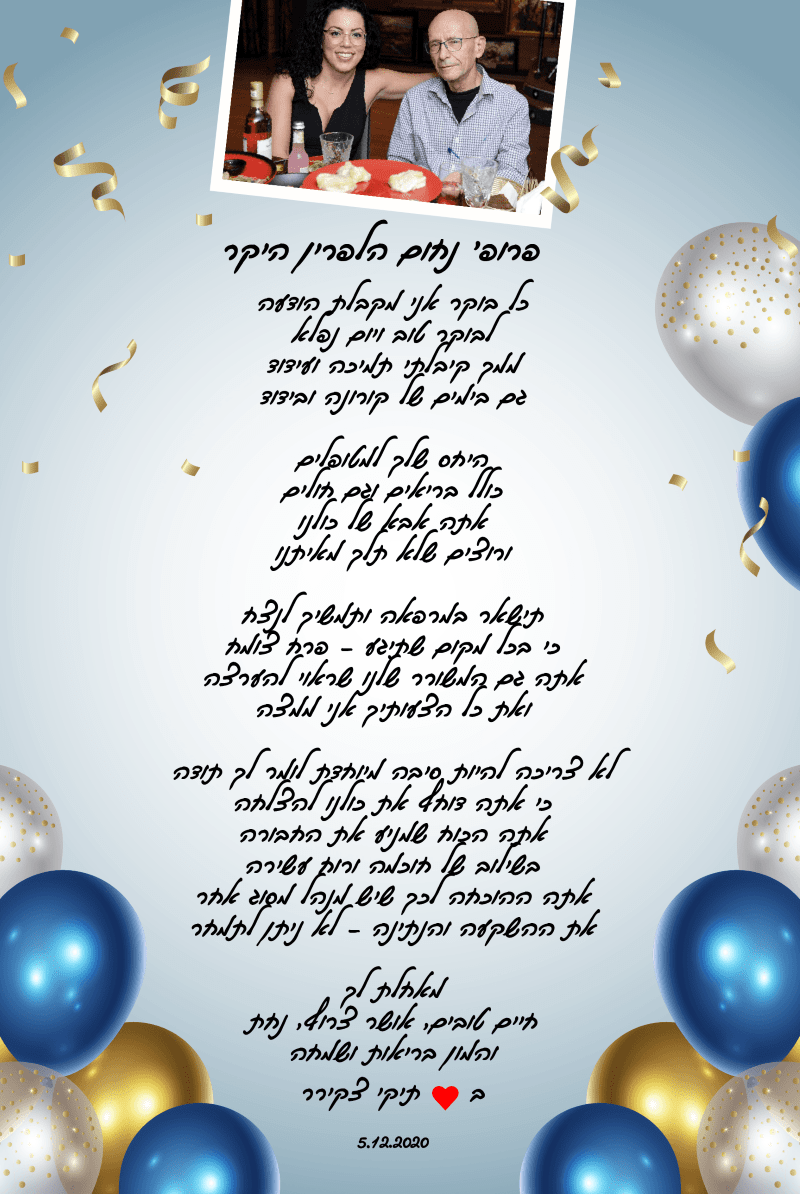 פרופ' נחום הלפרין היקר
כל בוקר אני מקבלת הודעה
לבוקר טוב ויום נפלא
ממך קיבלתי תמיכה ועידוד
גם בימים של קורונה ובידוד
היחס שלך למטופלים
כולל בריאים וגם חולים
אתה אבא של כולנו
ורוצים שלא תלך מאיתנו
תישאר במרפאה ותמשיך לנצח
כי בכל מקום שתיגע - פרח צומח
אתה גם המשורר שלנו שראוי להערצה
ואת כל הצעותיך אני ממצה
לא צריכה להיות סיבה מיוחדת לומר לך תודה
כי אתה דוחף את כולנו להצלחה
אתה הכוח שמניע את החבורה
בשילוב של חוכמה ורוח עשירה
אתה ההוכחה לכך שיש מנהל מסוג אחר
את ההשקעה והנתינה - לא ניתן לתמחר
מאחלת לך
חיים טובים, אושר צרוף, נחת
והמון בריאות ושמחה
ב ❤ תיקי צקירר
5.12.2020